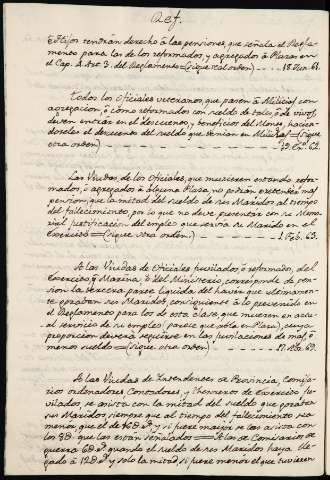 Ref.
tel Hijos tendrán derecho á las pensiones que señala el Regla-
mento para las de los reformados, y agregados á Plazas en
el Cap. 8. Art.º 3. del Reglamento = (Sigue real orden) 18.
Todos los Oficiales veteranos, que pasen á Milicias con
agregacion, ó como reformados con sueldo de tales, ó de vivos,
deven entrar en el descuento, y beneficios del Monte, hacien-
doseles el descuento del sueldo que tenian en Milicias = (Sigue
otra orden) 62.
Las Viudas de los Oficiales, que muriesen estando refor-
mados, ó agregados á alguna Plaza, no podrán pretender mas
pension, que la mitad del sueldo de sus Maridos al tiempo
del fallecimiento, por lo que no deve presentar con su Memo-
rial justificacion del empleo que servia su Marido en el
Exercito = (Sigue otra orden) 1 Feb. 63.
A las Viudas de Oficiales juvilados, ó reformados, del
Exercito, ó Marina, ó del Ministerio, corresponde de pen-
sion la tercera parte liquida del haver que ultimamen-
te gozaban sus Maridos, con siguiente á lo prevenido en
el Reglamento para los de esta clase, que mueren en actu-
al servicio de su empleo (parece que sólo en Plaza), cuya
proporcion deverá seguirse en las juvilaciones de mas, ó
menos sueldo = (Sigue otra orden) 17. 63.
A las Viudas de Intendentes de Provincia, Comisa-
rios ordenadores, Contadores, y Thesoreros de Exercito ju-
vilados, se asista con la mitad del sueldo que gozaban
sus Maridos, siempre que al tiempo del fallecimiento sea
menor que el de y si fuere mayor se las asista con
los que las están señalados = A las de Comisarios de
guerra quando el sueldo de sus Maridos haya lle-
gado á y solo la mitad, si fuere menor el que tuviesen